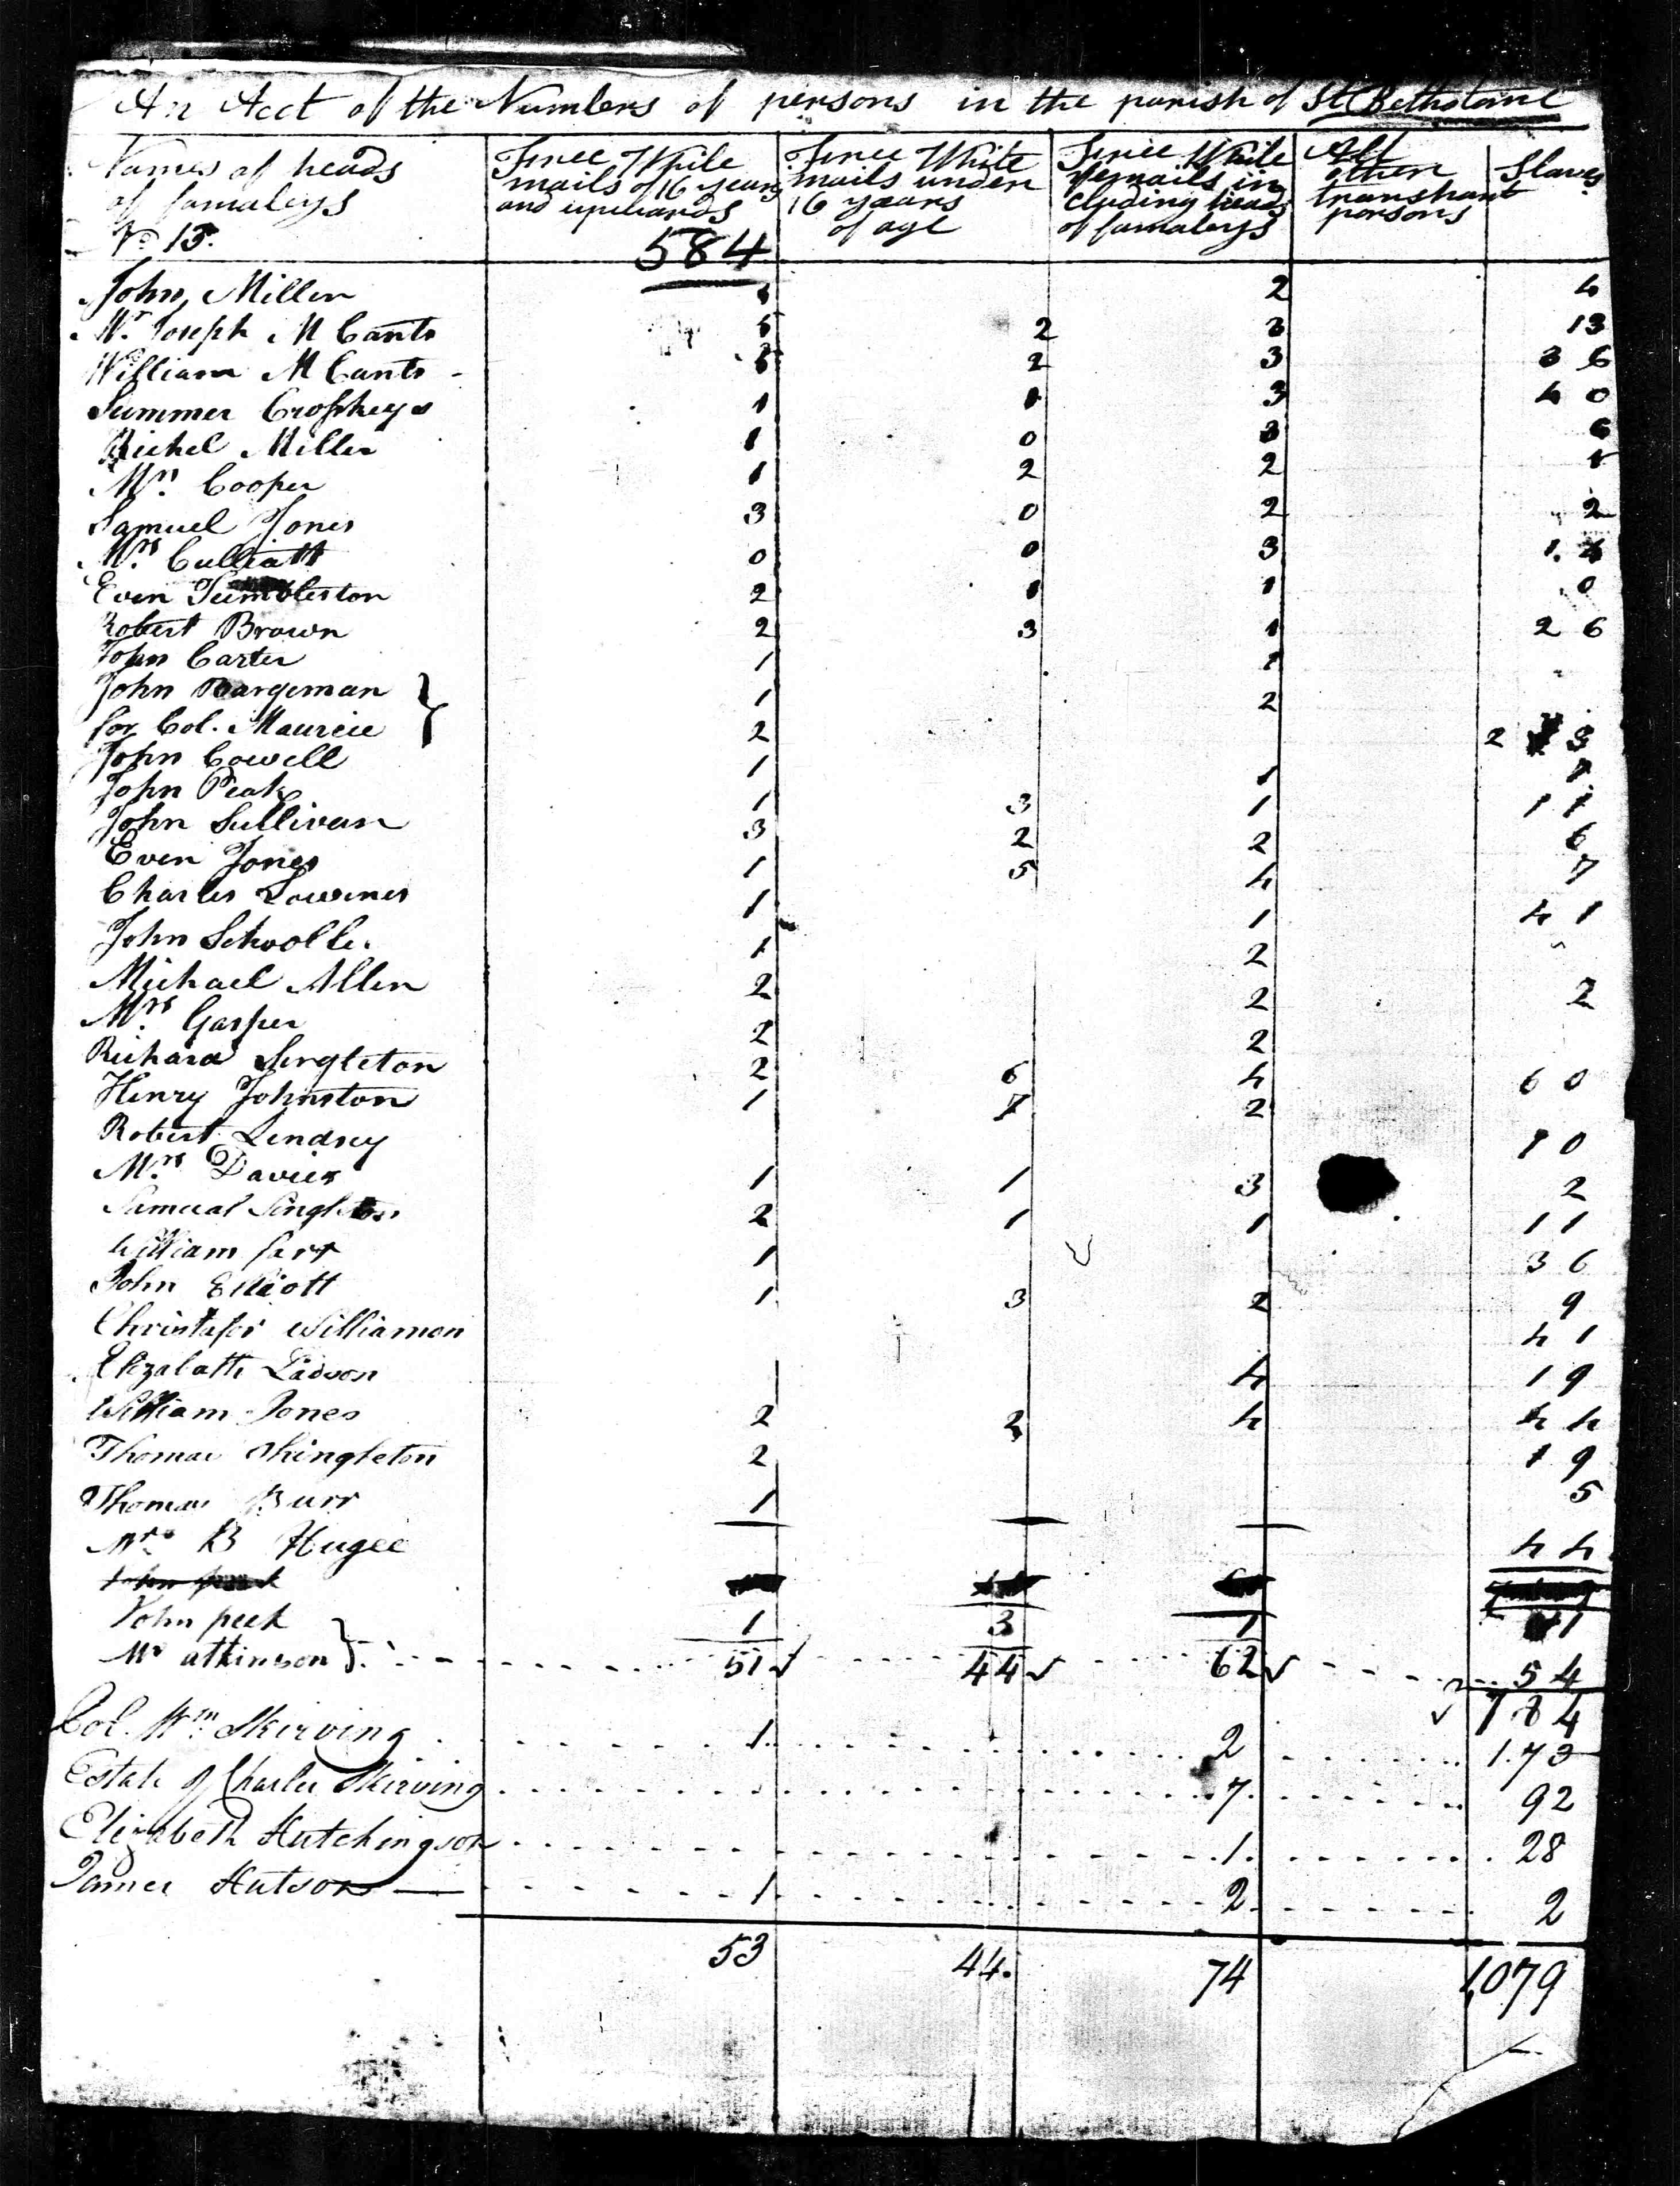 An Acct of the Numbers of persons in the parish of St Betholame
Names of heads of famaleys
No 15.
Free White mails of 16 years and upwards
584
Free White mails under 16 years of age
Free White femails in cluding heads of famaleys
All other transhant persons
Slaves
John Miller 1 2 4
Mr. Joseph M Cants 5 2 3 13
William M Cants 2 3 3 6
Summer Croskeys 1 1 3 4 0
Michel Miller 1 0 3 6
Mrs. Cooper 1 2 2 1
Samuel Jones 3 0 2 2
Mrs. Culliatt 0 0 3
Even Tumbleston 2 1 1 0
Robert Brown 2 3 1 2 6
John Carter 1 1
John Bargeman 1 2
for Col. Maurice 2 2 3
John Cowell 1 1 1
John Peak 1 3 1 1 1
John Sullivan 3 2 2 6
Even Jones 1 5 4 7
Charles Lowenes 1 1 4 1
John Schooller 1 2
Michael Allen 2 2 2
Mrs. Gasper 2 2
Richard Singleton 2 6 4 6 0
Henry Johnston 1 7 2
Robert Lendsey 1 0
Mrs. Davies 1 1 3 2
Samual Singleton 2 1 1 1 1
William 1 3 6
John Elliott 1 3 2 9
Christafor Williamon 4 1
Elizabath Ladson 4 1 9
William Jones 2 2 4 4 4
Thomas Shingleton 2 1 9
Thomas Burr 1 5
Mrs. B Hugee 4 4
John peek 1 3 1 1
Mr atkinson 51 44 62 54
784
Col. Wm. Skirving 1 2 1.73
Estate of Charles Skirving 7 92
Elizabeth Hutchingson 1 28
James Hutson 1 2 2
53 44. 74 1079